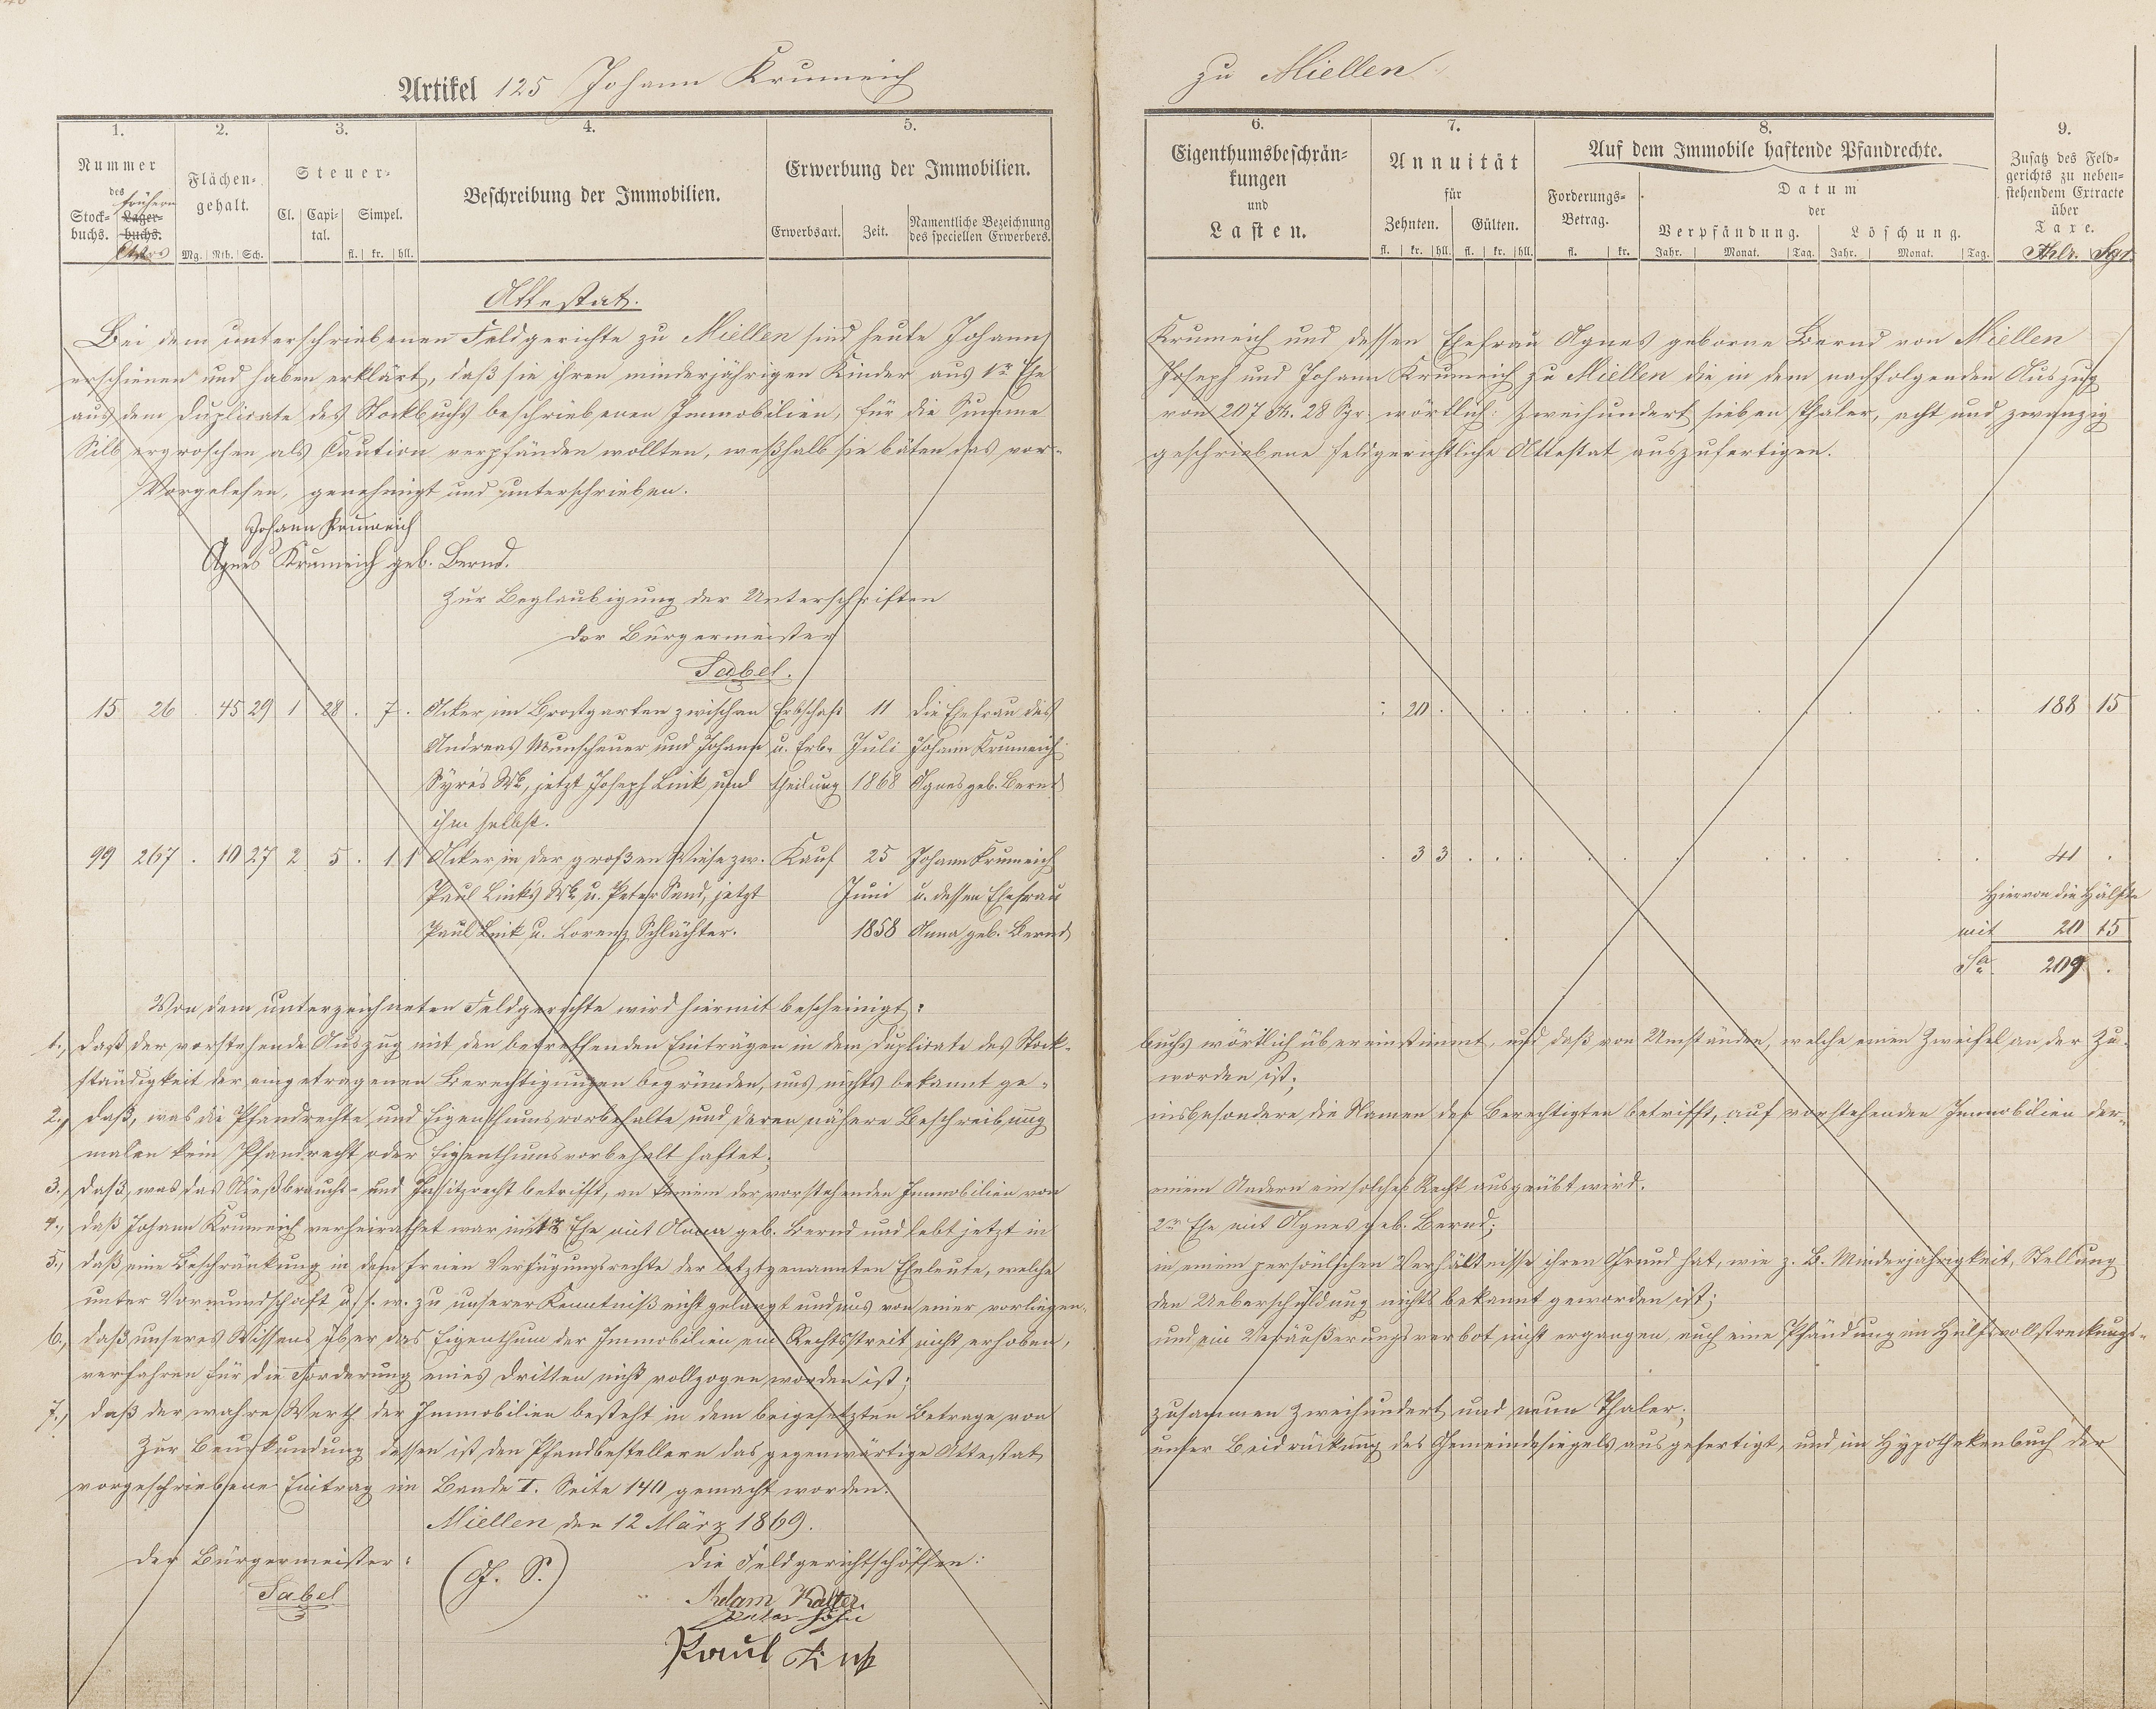 Artikel 125 Johann Krumeich
zu Miellen
1. 2. 3. 4. 5. 6. 7. 8. 9.
Nummer
des
frühern
Stock- Lager-
buchs. buchs.
Flächen-
gehalt.
Mg. Rth. Sch.
Steuer-
Cl. Capi-
tal. Simpel.
fl. kr. hll.
Beschreibung der Immobilien.
Erwerbung der Immobilien.
Erwerbsart. Zeit. Namentliche Bezeichnung
des speciellen Erwerbers.
Eigenthumsbeschrän-
kungen
und
Lasten.
Annuität
für
Zehnten. Gülten.
fl. kr. hll. fl. kr. hll.
Auf dem Immobile haftende Pfandrechte.
Forderungs-
Betrag.
fl. kr.
Datum
der
Verpfändung. Löschung.
Jahr. Monat. Tag. Jahr. Monat. Tag.
Zusatz des Feld-
gerichts zu neben-
stehendem Extracte
über
Taxe.
Thlr. Sgr.
Attestat.
Bei dem unterschriebenen Feldgerichte zu Miellen sind heute Johann Krumeich und dessen Ehefrau Agnes geborne Bernd von Miellen
erschienen und haben erklärt, daß sie ihren minderjährigen Kinder aus 1r Ehe Joseph und Johann Krumeich zu Miellen die in dem nachfolgenden Auszug
aus dem Duplicate des Stockbuchs beschriebenen Immobilien, für die Summe von 207 Th. 28 Sgr. wörtlich: Zweihundert sieben Thaler, acht und zwanzig
Silbergroschen als Caution verpfänden wollten, weßhalb sie bäten das vor- geschriebene feldgerichtliche Attestat auszufertigen.
Vorgelesen, genehmigt und unterschrieben.
Johann Krumeich
Agnes Krumeich geb. Bernd.
Zur Beglaubigung der Unterschriften
der Bürgermeister
Sabel.
15 26 . 45 29 1 28 . 7 . Acker im Brostgarten zwischen Erbschaft 11 die Ehefrau des : 20 . 188 15
Andreas Munscheuer und Johann u. Erb- Juli Johann Krumeich
Syrés Wb, jetzt Joseph Link und theilung 1868 Agnes geb. Bernd
ihm selbst.
99 267 . 10 27 2 5 . 1 1 Acker in der großen Wiese zw. Kauf 25 Johann Krumeich . 3 3 41 .
Paul Link's Wb u. Peter Sand, jetzt Juni u. dessen Ehefrau Hiervon die Hälfte
Paul Link u. Lorenz Schlächter. 1858 Anna geb. Bernd mit 20 15
Sa 209 .
Von dem unterzeichneten Feldgerichte wird hiermit bescheinigt:
1., daß der vorstehende Auszug mit den betreffenden Einträgen in dem Duplicate des Stock- buchs wörtlich übereinstimmt, und daß von Umständen, welche einen Zweifel an der Zu-
ständigkeit der eingetragenen Berechtigungen begründen, uns nichts bekannt ge- worden ist;
2., daß, was die Pfandrechte und Eigenthumsvorbehalte und deren nähere Beschreibung insbesondere die Namen der Berechtigten betrifft, auf vorstehenden Immobilien der-
malen kein Pfandrecht oder Eigenthumsvorbehalt haftet;
3., daß, was das Nießbrauchs- und Insitzrecht betrifft, an keinem der vorstehenden Immobilien von einem Andern ein solches Recht ausgeübt wird.
4., daß Johann Krumeich verheirathet war in 1r Ehe mit Anna geb. Bernd und lebt jetzt in 2r Ehe mit Agnes geb. Bernd;
5., daß eine Beschränkung in dem freien Verfügungsrechte der letztgenannten Eheleute, welche in einem persönlichen Verhältnisse ihren Grund hat, wie z. B. Minderjährigkeit, Stellung
unter Vormundschaft u. s. w. zu unserer Kenntniß nicht gelangt und uns von einer vorliegen- den Ueberschuldung nichts bekannt geworden ist;
6., daß unseres Wissens über das Eigenthum der Immobilien ein Rechtsstreit nicht erhoben, und ein Veräußerungsverbot nicht ergangen auch eine Pfändung im Hülfsvollstreckungs-
verfahren für die Forderung eines Dritten nicht vollzogen worden ist;
7., daß der wahre Werth der Immobilien besteht in dem beigesetzten Betrage von zusammen Zweihundert und neun Thaler;
Zur Beurkundung dessen ist den Pfandbestellern das gegenwärtige Attestat unter Beidrückung des Gemeindesiegels ausgefertigt, und im Hypothekenbuch der
vorgeschriebene Eintrag im Bande I. Seite 140 gemacht worden.
Miellen den 12 März 1869.
Der Bürgermeister: (G. S.) Die Feldgerichtschöffen:
Sabel Adam Kalter
Peter Höhn
Paul Link